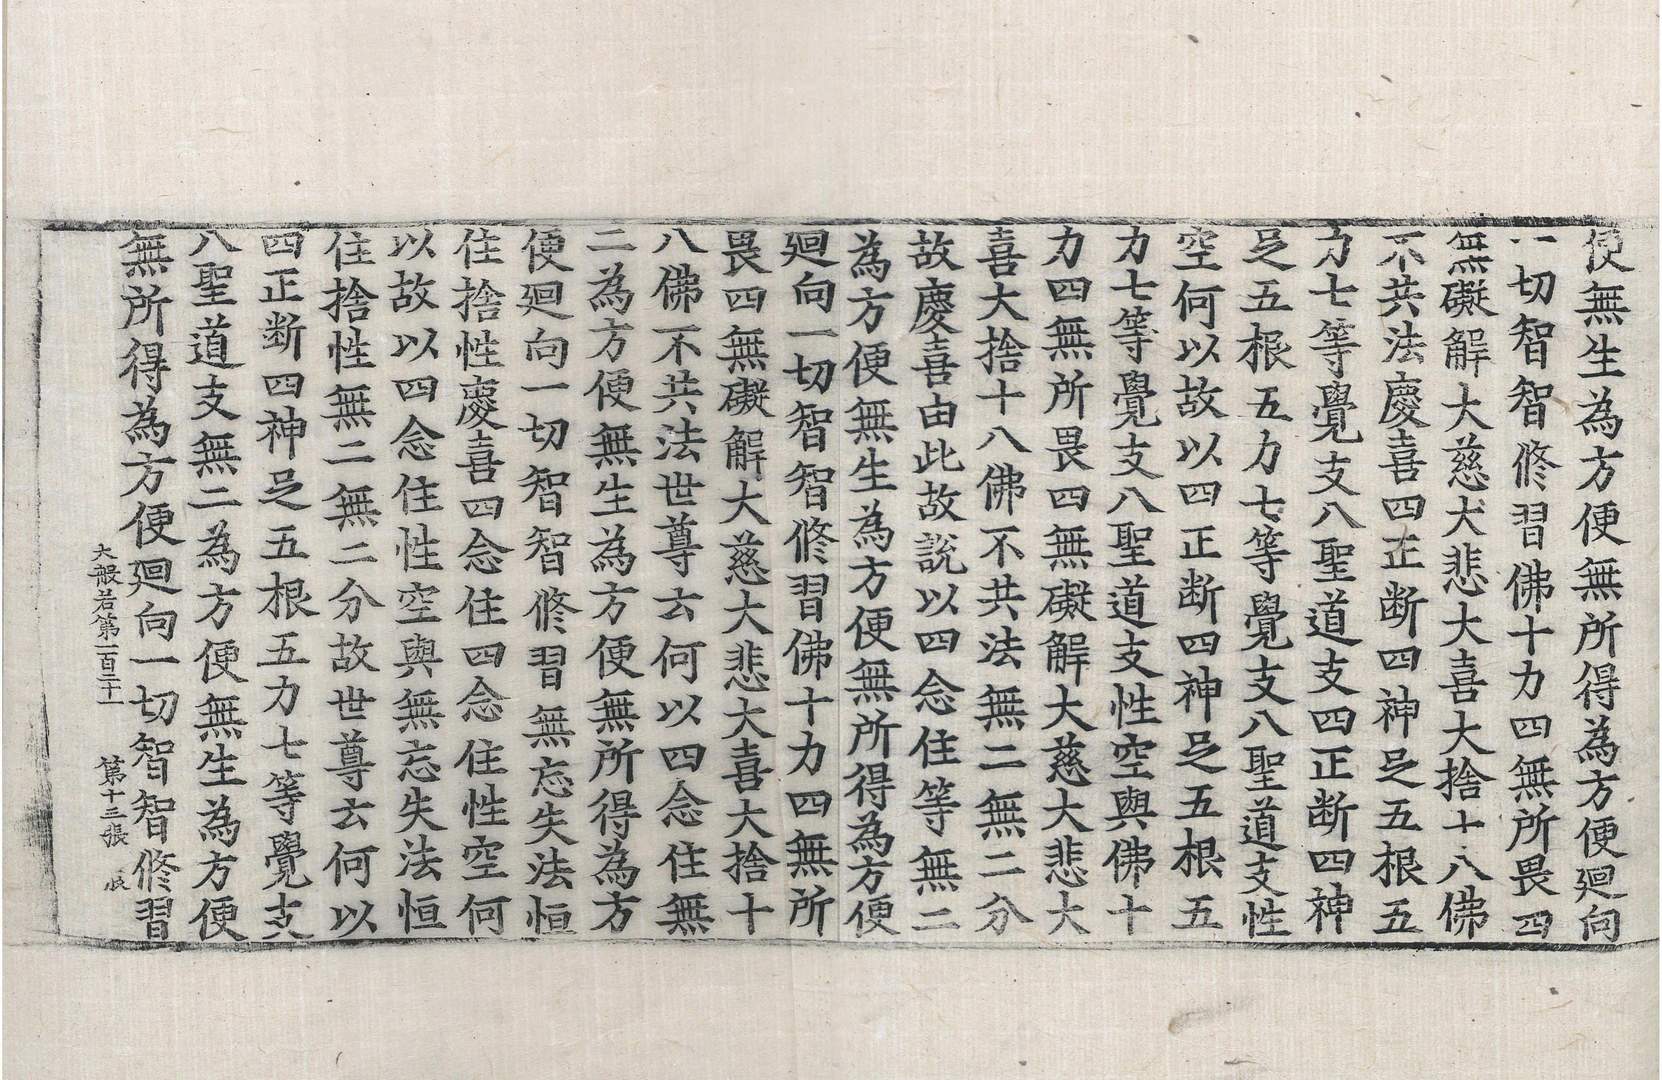 便無生為方便無所得為方便廻向
一切智智修習佛十力四無所畏四
無礙解大慈大悲大喜大捨十八佛
不共法慶喜四正断四神足五根五
力七等覺支八聖道支四正断四神
足五根五力七等覺支八聖道支性
空何以故以四正断四神足五根五
力七等覺支八聖道支性空與佛十
力四無所畏四無礙解大慈大悲大
喜大捨十八佛不共法無二無二分
故慶喜由此故說以四念住等無二
為方便無生為方便無所得為方便
廻向一切智智修習佛十力四無所
畏四無礙解大慈大悲大喜大捨十
八佛不共法世尊云何以四念住無
二為方便無生為方便無所得為方
便廻向一切智智修習無忘失法恒
住捨性慶喜四念住四念住性空何
以故以四念住性空與無忘失法恒
住捨性無二無二分故世尊云何以
四正断四神足五根五力七等覺支
八聖道支無二為方便無生為方便
無所得為方便廻向一切智智修習
大般若第一百二十一 第十三張